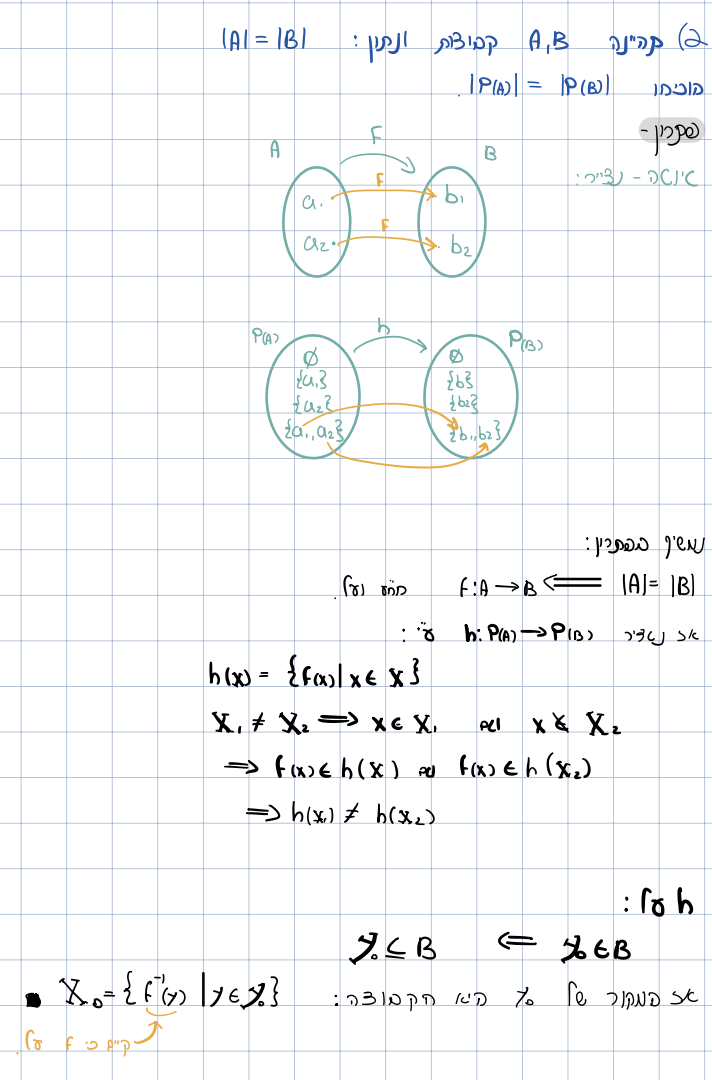 2) תהיינה A,B קבוצות ונתון: |A| = |B|
הוכיחו |P(A)| = |P(B)|.
פתרון -
אינטואיציה - נצייר:
A F B
a₁ F b₁
a₂ F b₂
P(A) h P(B)
∅ ∅
{a₁} {b}
{a₂} {b₂}
{a₁,a₂} {b₁,b₂}
נמשיך בפתרון:
|A| = |B| ⟸ f:A→B חח"ע ועל.
אז נגדיר h:P(A)→P(B) ע"י:
h(x) = {f(x)|x∈X}
X₁ ≠ X₂ ⟹ x∈X₁ וגם x∉X₂
⟹ f(x)∈h(X) וגם f(x)∈h(X₂)
⟹ h(x₁) ≠ h(x₂)
h על:
y₀∈B ⟸ y₀⊆B
אז המקור של y₀ היא הקבוצה:
X₀={f⁻¹(y) |y∈y₀} ■
קיים כי f על.